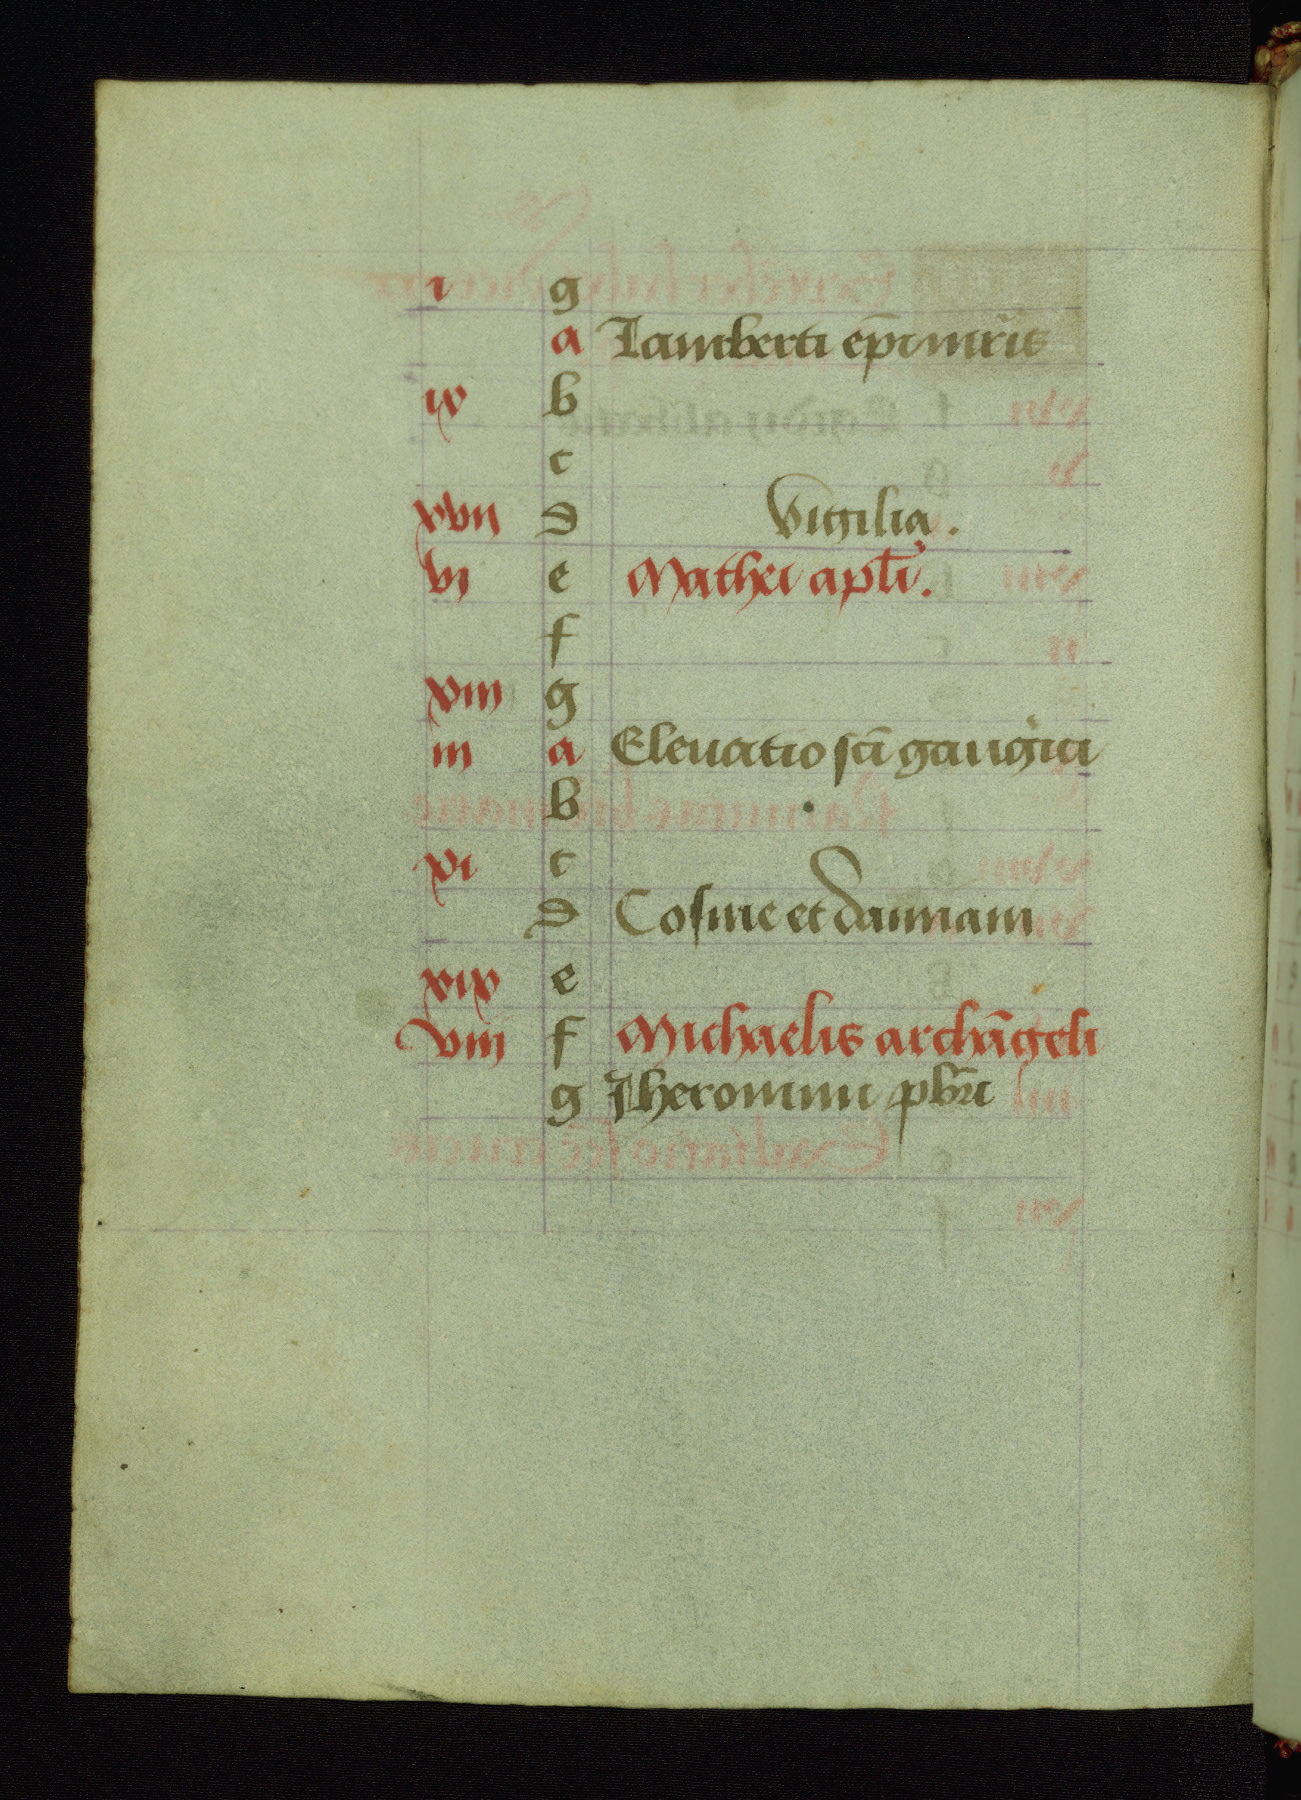 i g
a Lamberti ep̄i mr̄is
ix b
c
xvii d Vigilia.
vi e Mathei apl̄i.
f
xiiii g
iii a Eleuatio sc̄i gaugerici
b
xi c
d Cosme et damiani
xix e
viii f Michaelis archāgeli
g Jheronimi pbr̄i